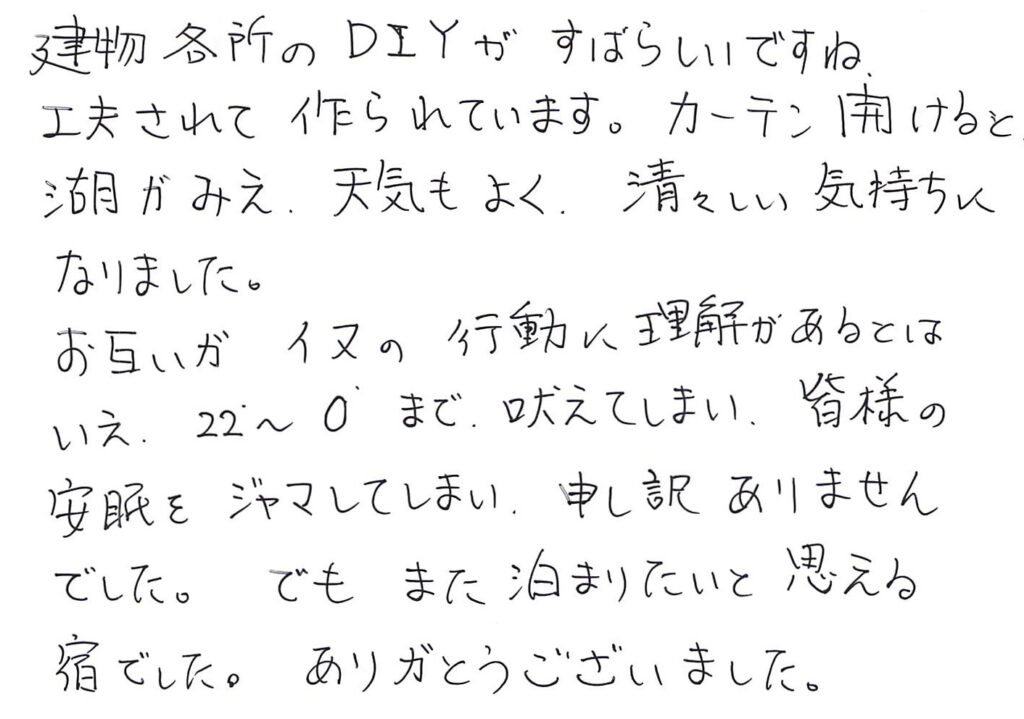 建物各所のDIYがすばらしいですね、
工夫されて作られています。カーテン開けると、
湖がみえ、天気もよく、清々しい気持ちに
なりました。
お互いがイヌの行動に理解があるとは
いえ、22゜〜0゜まで、吠えてしまい、皆様の
安眠をジャマしてしまい、申し訳ありません
でした。でもまた泊まりたいと思える
宿でした。ありガとうございました。